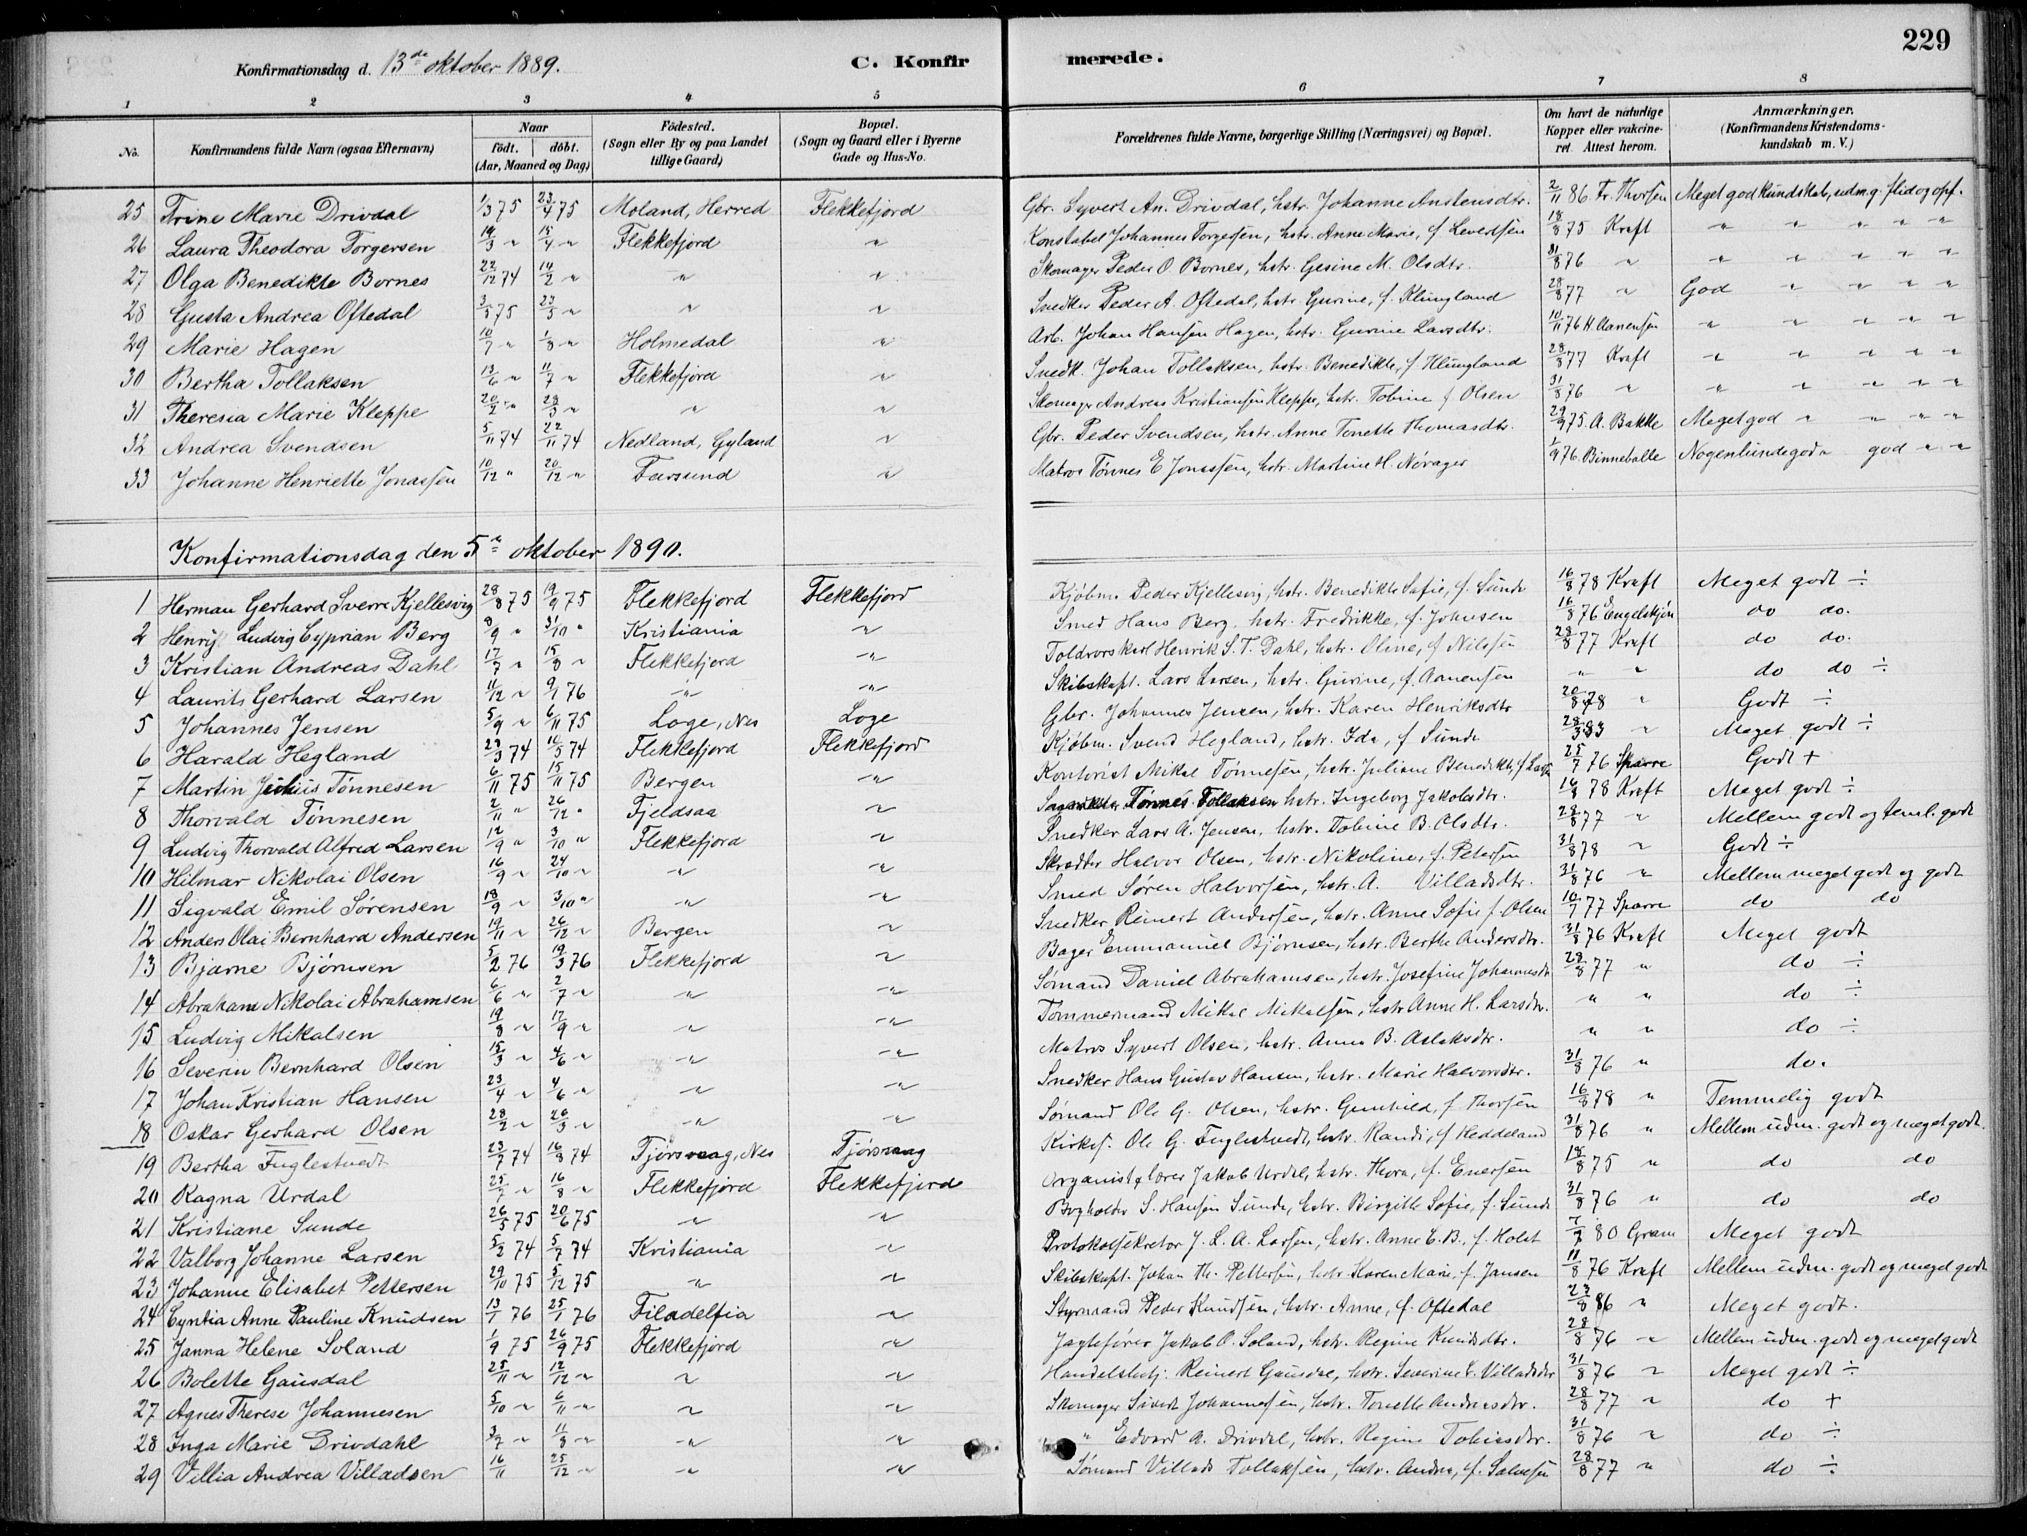 229
Konfirmationsdag d. 13de oktober 1889. C. Konfirmerede.
1 2 3 4 5 6 7 8
No. Konfirmandens fulde Navn (ogsaa Efternavn) Naar født. døbt. (Aar, Maaned og Dag) Fødested. (Sogn eller By og paa Landet tillige Gaard) Bopæl. (Sogn og Gaard eller i Byerne Gade og Hus-No. Forældrenes fulde Navne, borgerlige Stilling (Næringsvei) og Bopæl. Om havt de naturlige Kopper eller vakcineret. Attest herom. Anmærkninger. (Konfirmandens Kristendomskundskab m. V.)
25 Trine Marie Drivdal 1/3 75 23/4 75 Moland, Herred Flekkefjord Gbr. Syvert An. Drivdal, hstr. Johanne 2/11 86 Fr. Thorsen Meget god kundskab, udm. g. flid og opf.
26 Laura Theodora Torgersen 19/3 " 15/4 " Flekkefjord " Konstabel Johannes Torgersen, hstr. Anne Marie, f. Levordsen 18/8 75 Kraft " " " " "
27 Olga Benedikte Bornes 22/12 74 14/2 " " " Skomager Peder O Bornes, hstr. Gesine M. Olsdtr. 31/8 76 " " " " " "
28 Gusta Andrea Oftedal 3/3 75 23/5 " " " Snedker Peder A. Oftedal, hstr. Gurine, f. Klungland 28/8 77 " God " " " "
29 Marie Hagen 10/7 " 1/8 " Holmedal " Arb. Johan Hansen Hagen, hstr. Gurine Larsdtr. 10/11 76 H. Aanensen " " " " "
30 Bertha Tollaksen 13/6 " 11/7 " Flekkefjord " Snedk. Johan Tollaksen, hstr. Benedikte, f. Klungland 28/8 77 Kraft " " " " "
31 Theresia Marie Kleppe 20/2 " 28/3 " " " Skomager Andreas Kristiansen Kleppe, hstr. Tobine f Olsen 31/8 76 " " " " " "
32 Andrea Svendsen 5/11 74 22/11 74 Nedland, Gyland " Gbr. Peder Svendsen, hstr. Anne Tonette Thomasdtr. 29/9 75. A. Bakke Meget god " " " "
33 Johanne Henriette Jonassen 10/12 " 20/12 " Farsund " Matros Tønnes E Jonassen, hstr. Martine H. Nørager 1/9 76. Binneballe Nogenlunde god " god " "
Konfirmationsdag den 5te oktober 1890.
1 Herman Gerhard Sverre Kjellesvig 28/8 75 19/9 75 Flekkefjord Flekkefjord Kjøbm. Peder Kjellesvig, hstr. Benedikte Sofie, f. Sunde 16/8 78 Kraft Meget godt ÷
2 Henrij Ludvig Cyprian Berg 8/9 " 31/10 " Kristiania " Smed Hans Berg, hstr. Fredrikke, f. Johnsen 16/8 76 Engelskjøn do do.
3 Kristian Andreas Dahl 17/7 " 15/8 " Flekkefjord " Toldvorskarl Henrik S. T. Dahl, hstr. Oline, f. Nilssen 28/8 77 Kraft do do.
4 Laurits Gerhard Larsen 11/12 " 9/1 76 " " Skibskapt. Lars Larsen, hstr. Gurine, f. Aanensen " " do do ÷
5 Johannes Jensen 5/9 " 6/11 75 Loge, Nes Loge Gbr. Johannes Jensen, hstr. Karen Henriksdtr 20/8 78 " Godt ÷
6 Harald Hegland 23/3 74 10/5 74 Flekkefjord Flekkefjord Kjøbm. Svend Hegland, hstr. Ida, f Sunde 28/3 83 " Meget godt ÷
7 Martin Julius Tønnesen 6/11 75 15/11 75 Bergen " Kontorist Mikal Tønnesen, hstr. Juliane Benedikte, f. 25/7 76 Sparre Godt +
8 Thorvald Tønnesen 2/11 " 26/12 " Fjeldsaa " Tønnes Tollaksen hstr. Ingeborg Jakobsdtr. 16/8 78 Kraft Meget godt ÷
9 Ludvig Thorvald Alfred Larsen 12/9 " 3/10 " Flekkefjord " Snedker Lars A. Jensen, hstr. Tobine B. Olsdtr. 28/8 77 " Mellem godt og teml. godt
10 Hilmar Nikolai Olsen 16/9 " 24/10 " " " Skrædder Halvor Olsen, hstr. Nikoline, f. Petersen 31/8 78 " Godt ÷
11 Sigvald Emil Sørensen 18/9 " 3/10 " " " Smed Søren Halvorsen, hstr. A. Villadsdtr. 31/8 76 " Mellem meget godt og godt
12 Anders Olai Bernhard Andersen 19/11 " 26/12 " Bergen " Snedker Reinert Andersen, hstr. Anne Sofie f. Olsen 10/7 77 Sparre do do
13 Bjarne Bjørnsen 5/2 76 19/3 76 Flekkefjord " Bager Emmanuel Bjørnsen, hstr. Berthe Andersdtr. 31/8 76 Kraft Meget godt
14 Abraham Nikolai Abrahamsen 6/6 " 2/7 " " " Sømand Daniel Abrahamsen, hstr. Josefine Johannesdtr 28/8 77 " do ÷
15 Ludvig Mikalsen 19/8 " 17/9 " " " Tømmermand Mikal Mikalsen, hstr Anne H. Larsdtr. " " do ÷
16 Severin Bernhard Olsen 15/3 " 4/6 " " " Matros Syvert Olsen, hstr. Anna B. Aslaksdtr. " " do ÷
17 Johan Kristian Hansen 23/4 " 4/6 " " " Snedker Hans Gustav Hansen, hstr. Marie Halvorsdtr. 31/8 76 " do.
18 Oskar Gerhard Olsen 28/2 " 26/3 " " " Sømand Ole G. Olsen, hstr. Gunhild, f Thorsen 16/8 78 " Temmelig godt
19 Bertha Fuglestvedt 23/7 74 16/8 74 Tjørsvaag, Nes Tjørsvaag Kirkes. Ole G. Fuglestvedt, hstr. Randi, f Heddeland 31/8 76 " Mellem udm. godt og meget godt.
20 Ragna Urdal 25/7 " 16/8 " Flekkefjord Flekkefjord Organist & lærer Jakob Urdal, hstr. Thora, f. Enersen 18/8 75 " do do
21 Kristiane Sunde 26/5 75 20/6 75 " " Bogholder S. Hansen Sunde, hstr. Birgitte Sofie, f. Sunde 31/8 76 " do do
22 Valborg Johanne Larsen 5/2 74 5/7 74 Kristiania " Protokolsekretær J. L. A. Larsen, hstr. Anne E. B., f. Holst 7/7 80 Gram Meget godt
23 Johanne Elisabet Pettersen 29/10 75 5/12 75 " " Skibskapt. Johan Th. Pettersen, hstr. Karen Marie, f. Jansen 11/8 76 Kraft Mellem udm. godt og meget godt
24 Cyntia Anne Pauline Knudsen 13/1 76 25/1 76 Filadelfia " Styrmand Peder Knudsen, hstr. Anne, f. Oftedal 23/8 86 " Meget godt.
25 Janna Helene Soland 1/9 75 26/9 75 Flekkefjord " Jagtefører Jakob P. Soland, hstr. Regine Knudsdtr. 28/8 76 " Mellem udm. godt og meget godt
26 Bolette Gausdal 25/11 " 12/12 " " " Handelsbetj. Reinert Gausdal, hstr. Severine E. Villadsdtr 31/8 76 " Meget godt ÷
27 Agnes Therese Johannesen 5/10 " 6/11 " " " Skomager Sivert Johannesen, hstr. Tonette Andreasdtr. 28/8 77 " do +
28 Inga Marie Drivdahl 3/7 " 11/8 " " " " Edvard A. Drivdal, hstr. Regine Tobiasdtr. 31/8 76 " do ÷
29 Villia Andrea Villadsen 16/11 25/12 " " " Sømand Villads Tollaksen, hstr. Andrea, f. Salvesen 28/8 77 " do ÷